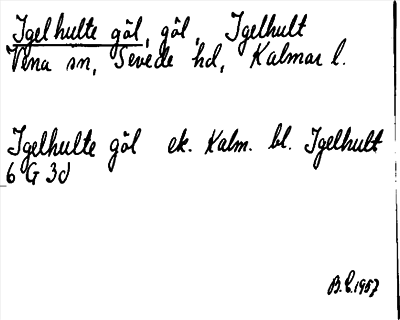 Igelhulte göl, göl, Igelhult
Vena sn, Sevede hd, Kalmar l.
Igelhulte göl ek. Kalm. bl. Igelhult
6 G 3d
B.E. 1957